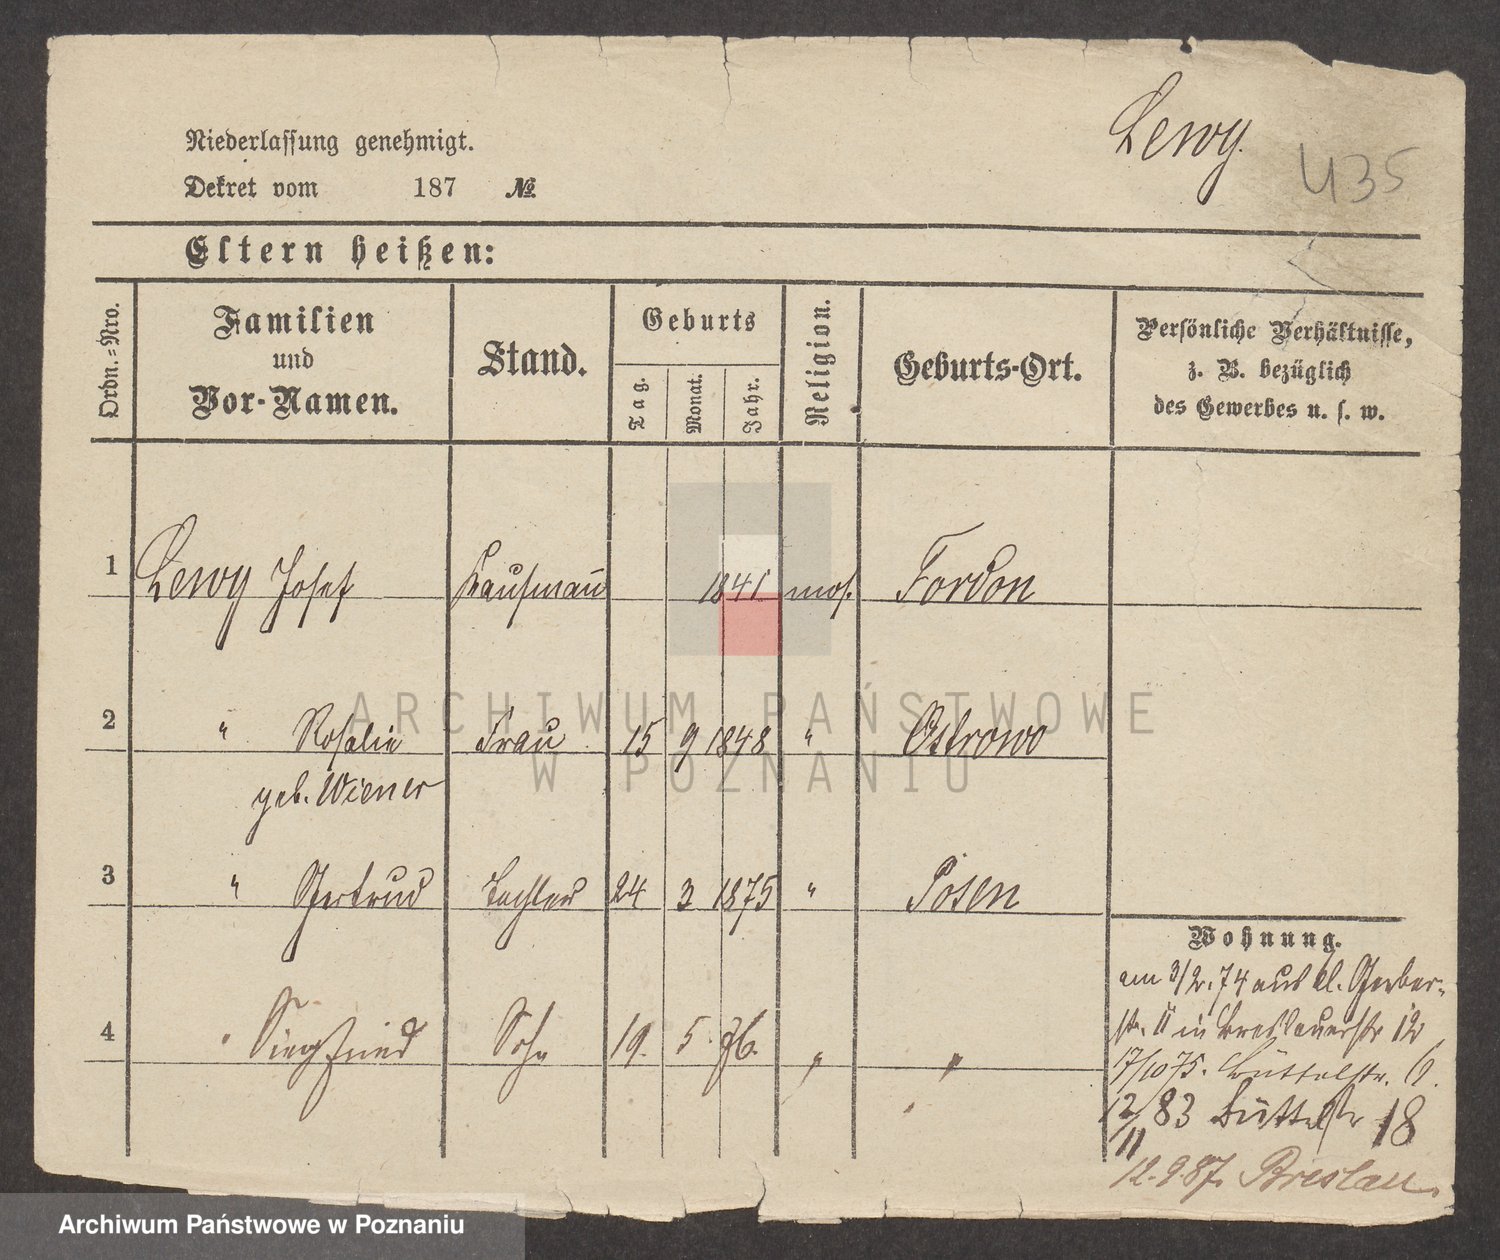 Lewy.
435
Niederlassung genehmigt.
Dekret vom 187 №
Eltern heißen:
Ordn.=Nro.
Familien
und
Vor-Namen.
Stand.
Geburts
Tag.
Monat.
Jahr.
Religion.
Geburts-Ort.
Persönliche Verhältnisse,
z. B. bezüglich
des Gewerbes u. s. w.
1 Lewy Josef Kaufmann 1841 mos. Fordon
2 " Rosalie Frau 15 9 1848 " Ostrowo
geb. Wiener
3 " Gertrud Tochter 24 3 1875 " Posen
4 " Siegfried Sohn 19. 5. 76. " "
Wohnung.
am 3/2. 74 aus kl. Gerber-
str. 11 in Breslauerstr 12
17/10 75. Büttelstr. 6.
12/11 83 Büttelstr 18
12.9.87. Breslau.
ARCHIWUM PAŃSTWOWE
W POZNANIU
Archiwum Państwowe w Poznaniu